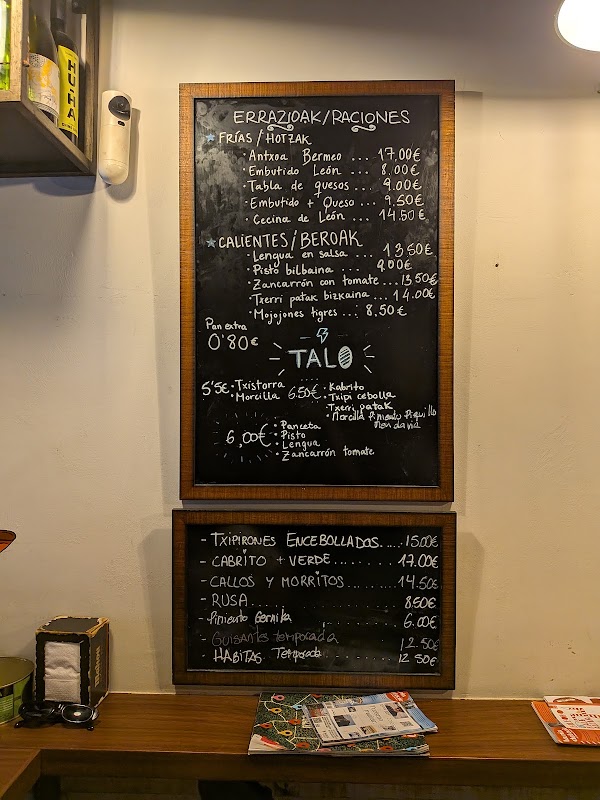 HU-HA
ERRAZIOAK/RACIONES
FRÍAS/HOTZAK
· Antxoa Bermeo ... 17.00€
· Embutido León ... 8.00€
· Tabla de quesos ... 9.00€
· Embutido + Queso ... 9.50€
· Cecina de León ... 14.50€
CALIENTES/BEROAK
· Lengua en salsa ... 13.50€
· Pisto bilbaina ... 9.00€
· Zancarrón con tomate ... 13.50€
· Txerri patak bizkaina ... 14.00€
· Mojojones tigres ... 8.50€
Pan extra
0'80€
TALO
5'5€ · Txistorra
· Morcilla
6.50€ · Kabrito
· Txipi cebolla
· Txerri patak
· Morcilla Pimiento Piquillo
Mendavia
6,00€ · Panceta
· Pisto
· Lengua
· Zancarrón tomate
- TXIPIRONES ENCEBOLLADOS...... 15.00€
- CABRITO + VERDE........... 17.00€
- CALLOS Y MORRITOS.......... 14.50€
- RUSA................ 8.50€
- Pimiento Gernika ........ 6.00€
- GUISANTES temporada 12.50€
- HABITAS Temporada 12 50€